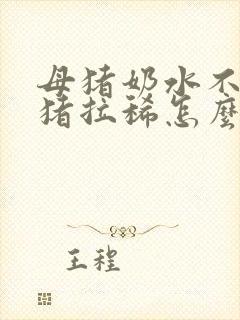 母猪奶水不
猪拉稀怎麽
王程